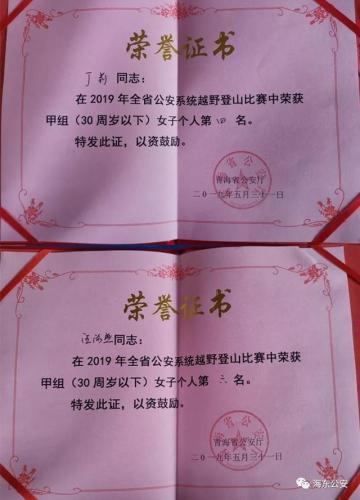 荣誉证书
丁莉同志:
在2019年全省公安系统越野登山比赛中荣获
甲组(30周岁以下)女子个人第四名。
特发此证,以资鼓励。
青海省公安厅
二〇一九年五月三十一日
荣誉证书
同志:
在2019年全省公安系统越野登山比赛中荣获
甲组(30周岁以下)女子个人第六名。
特发此证,以资鼓励。
青海省公安厅
二〇一九年五月三十一日
海东公安